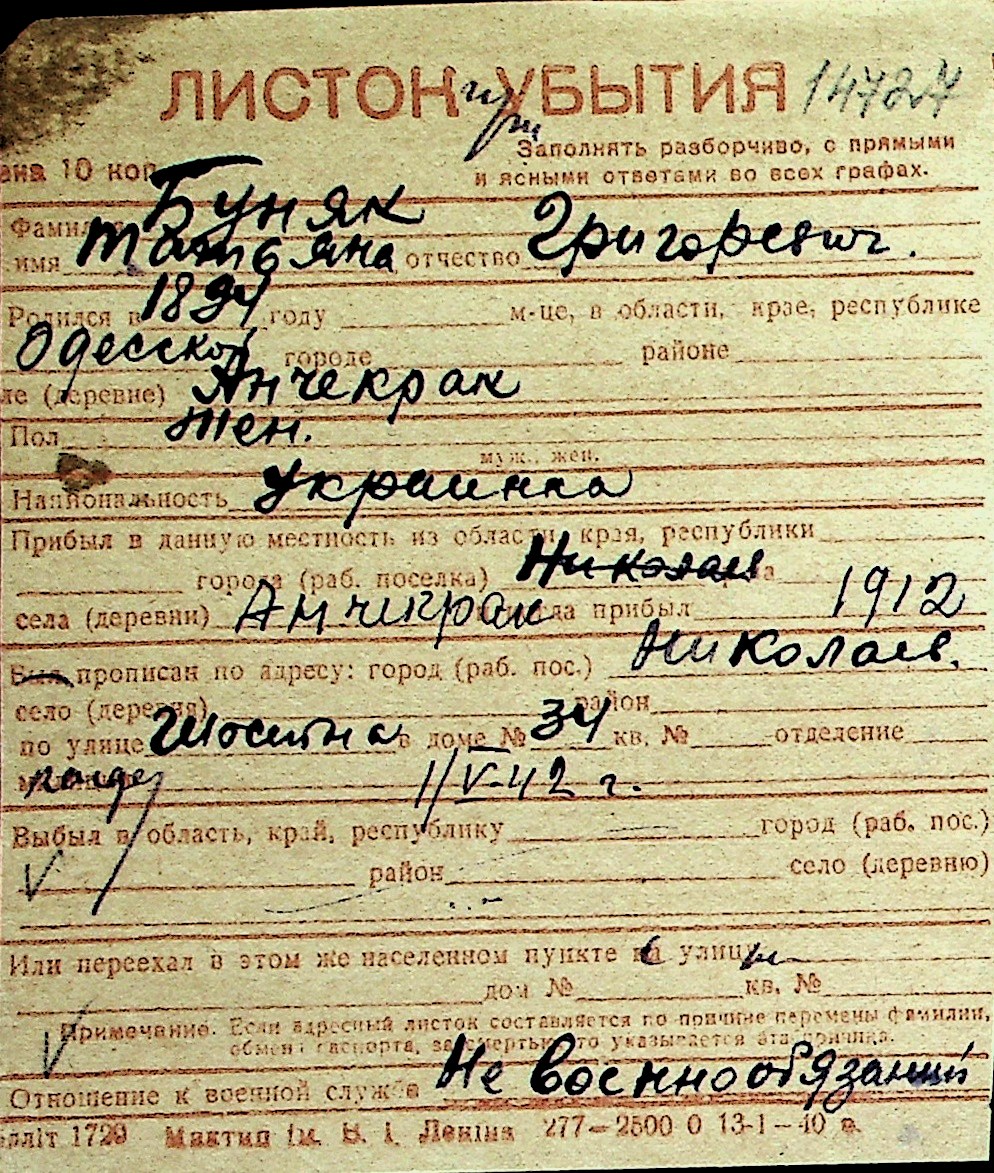 ЛИСТОК УБЫТИЯ 14727
Заполнять разборчиво, с прямыми
ена 10 коп. и ясными ответами во всех графах.
Фамилия Буняк
имя Татьяна отчество Григоревич.
Родился в 1894 году м-це, в области, крае, республике
Одесской городе районе
ле (деревне) Анчекрак
Пол жен.
муж., жен.
Национальность украинка
Прибыл в данную местность из области, края, республики
города (раб. поселка) Николаев
села (деревни) Анчикрак когда прибыл 1912
Был прописан по адресу: город (раб. пос.) Николаев.
село (деревня) район
по улице Шосейна в доме № 34 кв. № отделение
милиции 1/V-42 г.
Выбыл в область, край, республику город (раб. пос.)
район село (деревню)
Или переехал в этом же населенном пункте на улицу
дом № кв. №
Примечание. Если адресный листок составляется по причине перемены фамилии,
обмена паспорта, за смертью, то указывается эта причина.
Отношение к военной службе Не военнообязаний
елліт 1729 Миктип ім. В. І. Леніна 277—2500 0 13-1—40 в.